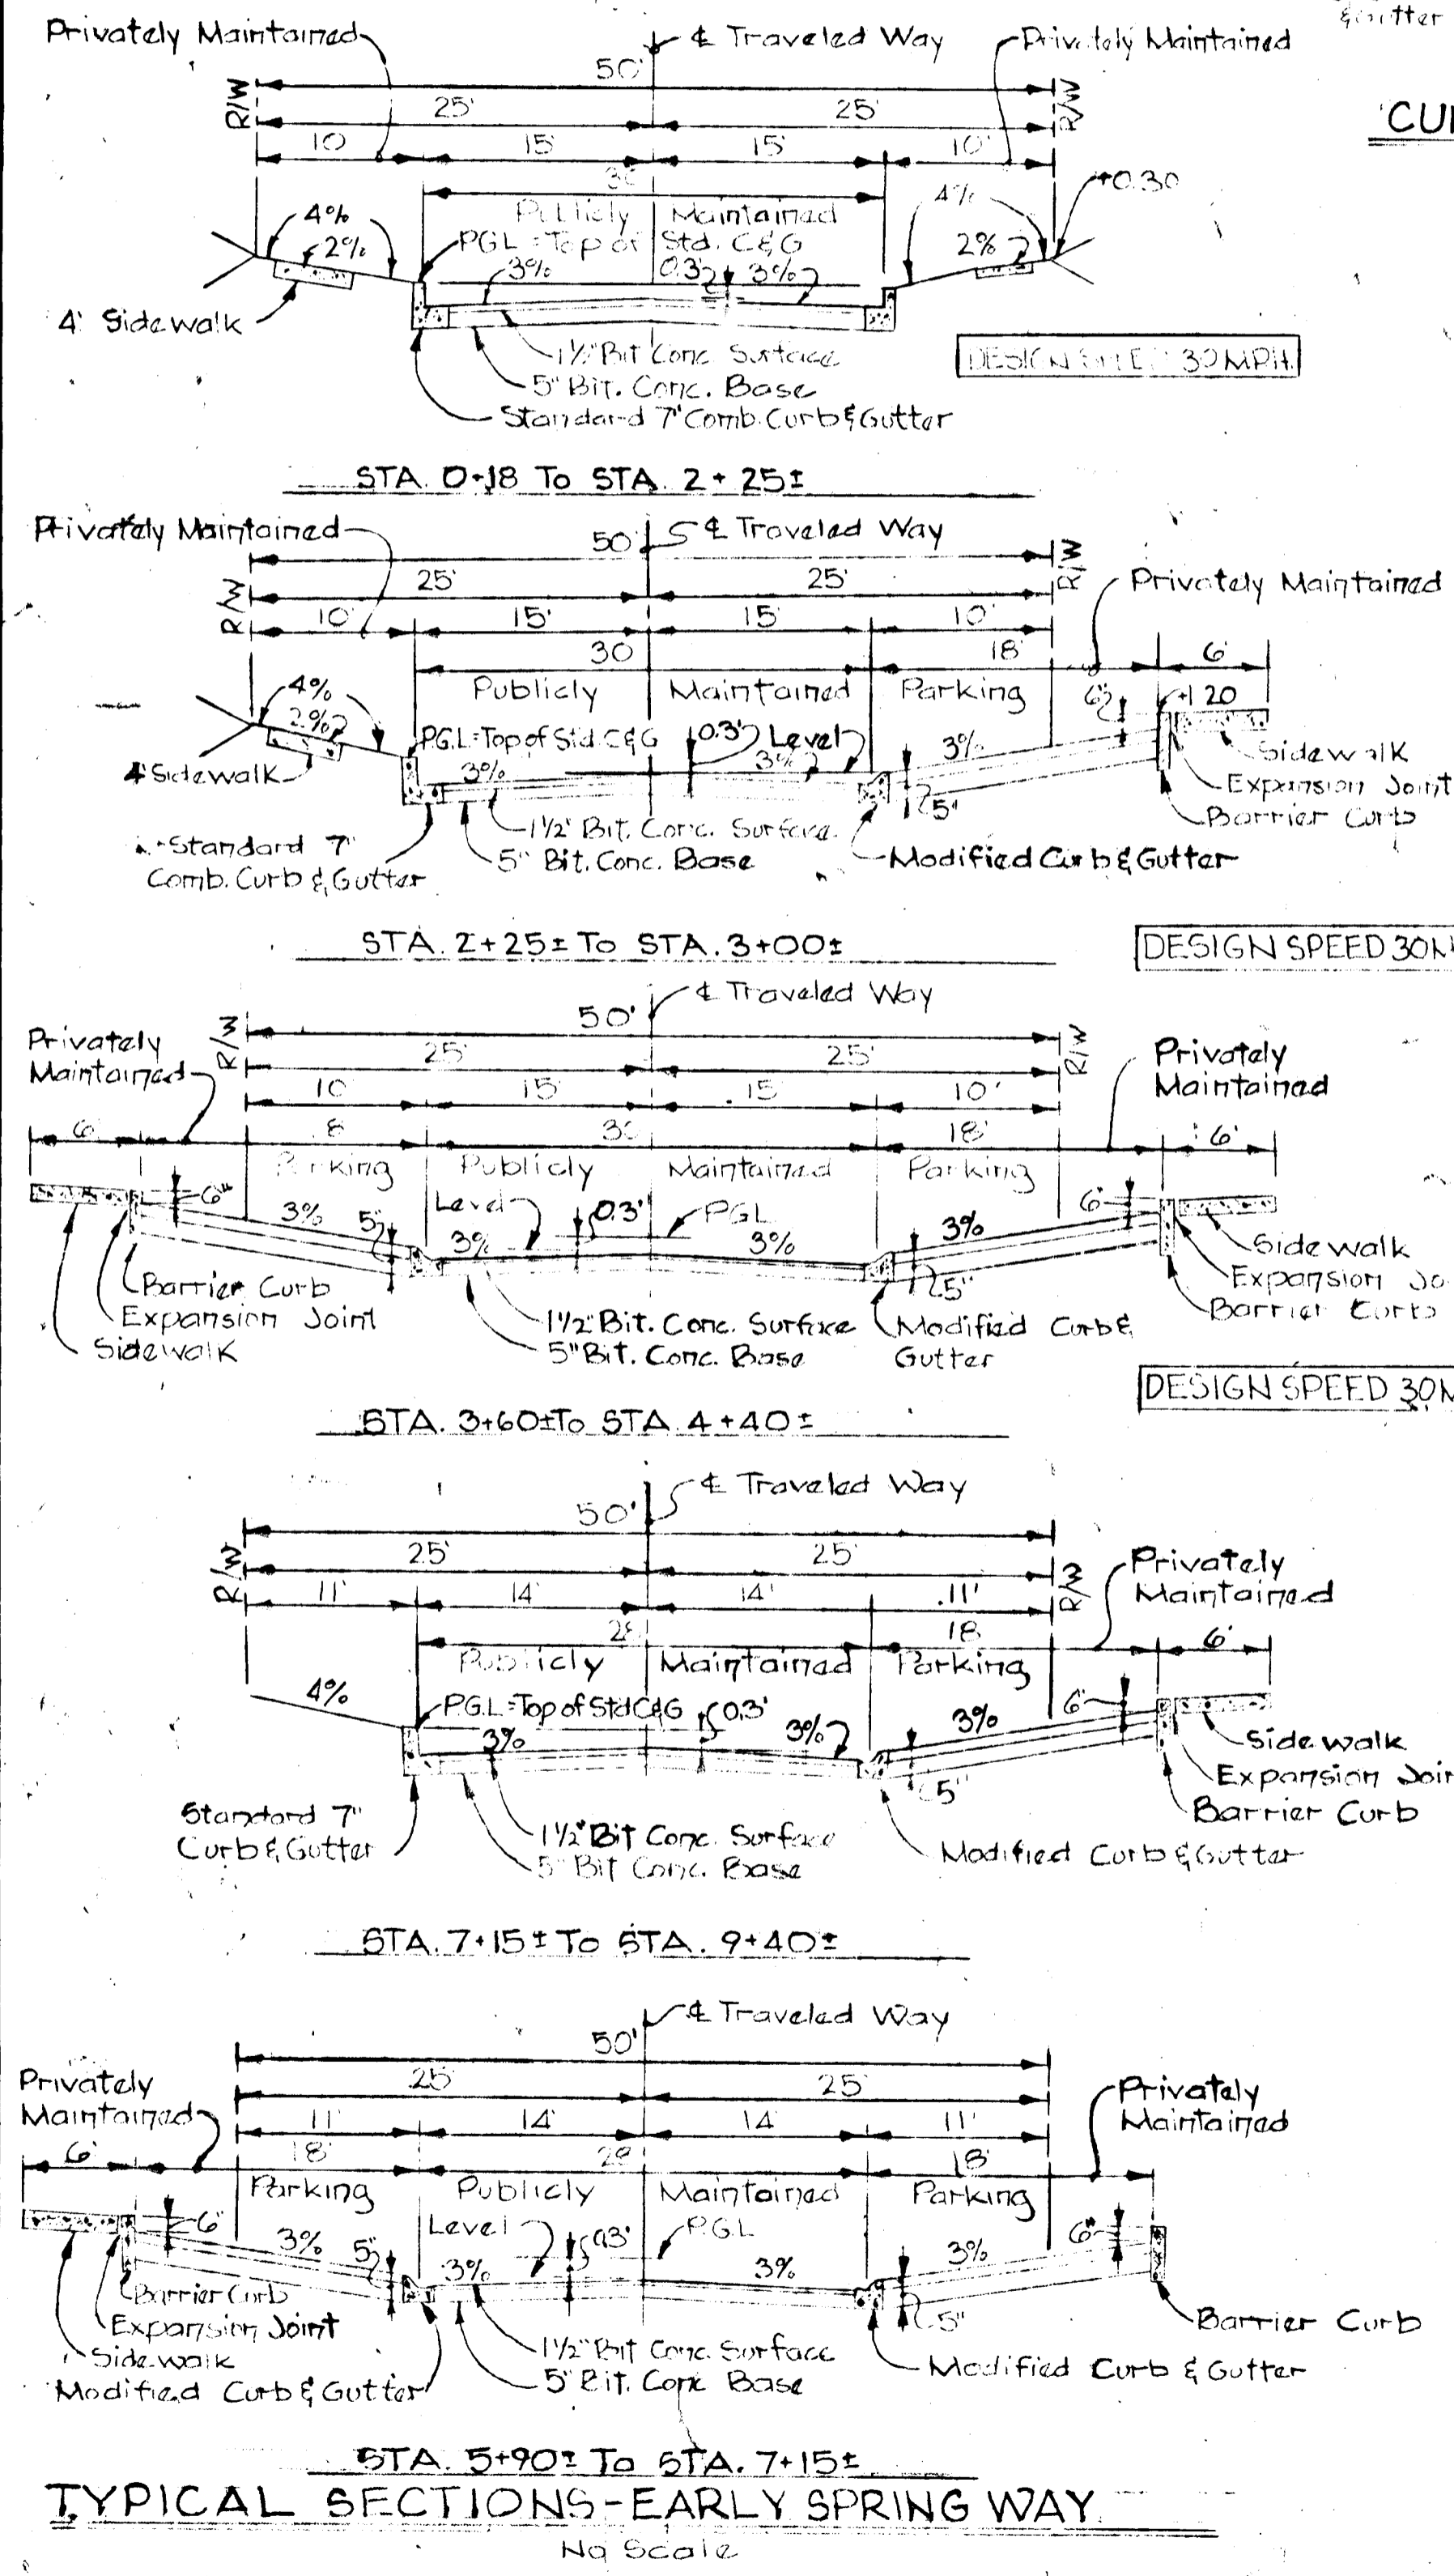 Privately Maintained
℄ Traveled Way
Privately Maintained
&Gutter
50'
R/W
R/W
25'
25'
10
15'
15'
10'
Publicly Maintained
4%
2%
PGL = Top of Std. C&G
3%
0.3'
3%
4%
2%
+0.30
4' Sidewalk
1½" Bit Conc Surface
5" Bit. Conc. Base
Standard 7" Comb. Curb & Gutter
30 MPH.
STA. 0+18 To STA. 2+25±
Privately Maintained
50'
℄ Traveled Way
R/W
R/W
25'
25'
Privately Maintained
10'
15'
15'
10'
30
18'
6'
Publicly
Maintained
Parking
4%
2%
P.G.L=Top of Std. C&G
0.3'
Level
3%
3%
3%
6"
5"
4' Sidewalk
Sidewalk
Expansion Joint
Barrier Curb
Standard 7"
Comb. Curb & Gutter
1½" Bit. Conc. Surface
5" Bit. Conc. Base
Modified Curb & Gutter
STA. 2+25± To STA. 3+00±
DESIGN SPEED 30
℄ Traveled Way
50'
Privately
Maintained
R/W
R/W
25'
25'
Privately
Maintained
10
15'
15'
10'
6'
18'
6'
Parking
Publicly
Maintained
Parking
6"
3%
5"
Level
0.3'
PGL
3%
3%
3%
6"
5"
Barrier Curb
Expansion Joint
Sidewalk
Sidewalk
Expansion Jo
Barrier Curb
1½" Bit. Conc. Surface
5" Bit. Conc. Base
Modified Curb &
Gutter
DESIGN SPEED 30
STA. 3+60± To STA. 4+40±
℄ Traveled Way
50'
R/W
R/W
25'
25'
Privately
Maintained
11'
14'
14'
11'
18
6'
Publicly
Maintained
Parking
4%
P.G.L=Top of Std C&G
0.3'
3%
3%
3%
6"
5"
Sidewalk
Expansion Join
Barrier Curb
Standard 7"
Curb & Gutter
1½" Bit Conc. Surface
5" Bit Conc. Base
Modified Curb & Gutter
STA. 7+15± To STA. 9+40±
℄ Traveled Way
50'
Privately
Maintained
25'
25'
Privately
Maintained
11'
14'
14'
11'
6'
18'
28'
18'
Parking
Publicly
Maintained
Parking
6"
3%
5"
Level
0.3'
P.G.L
3%
3%
3%
6"
5"
Barrier Curb
Expansion Joint
Sidewalk
Modified Curb & Gutter
1½" Bit Conc. Surface
5" Bit. Conc Base
Barrier Curb
Modified Curb & Gutter
STA. 5+90± To STA. 7+15±
TYPICAL SECTIONS-EARLY SPRING WAY
No Scale